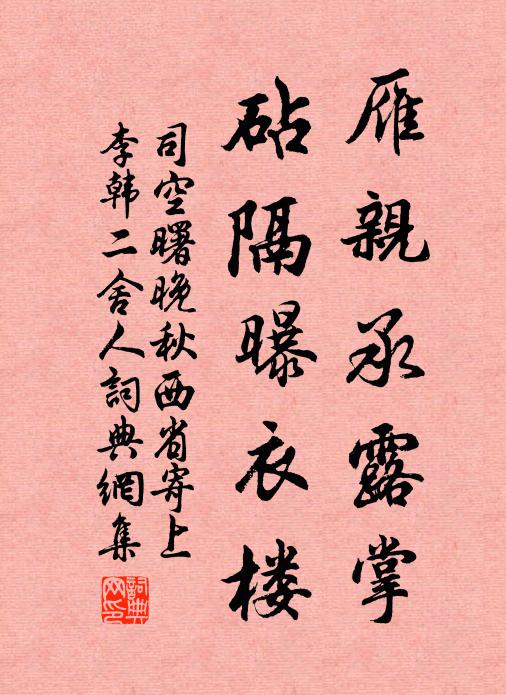 雁親承露掌
砧隔曝衣楼
司空曙晚秋西省寄上
李韩二舍人詞典網集
詞典網印